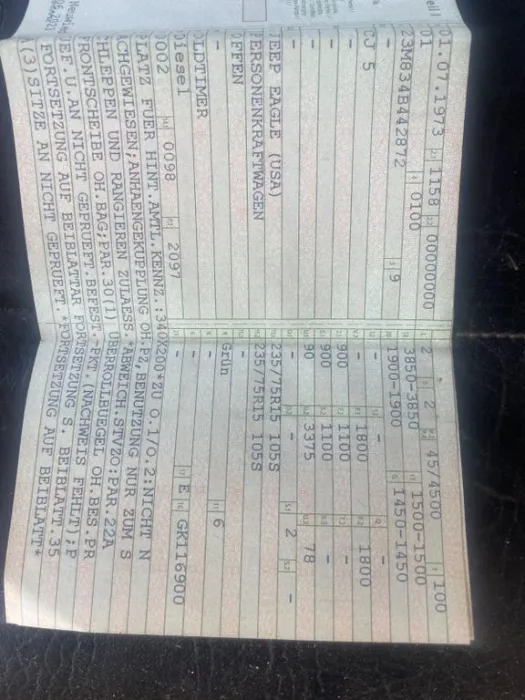 Neuerteilung
01.07.1973 1158 00000000
01 0100
23M834B442872 9
-
CJ 5
-
-
-
JEEP EAGLE (USA)
PERSONENKRAFTWAGEN
OFFEN
-
OLDTIMER
-
Diesel
0002 0098 2097
2 2 45/4500 100
3850-3850 1500-1500
1900-1900 1450-1450
- -
- 1800 1800
900 1100 -
900 1100 -
90 3375 78
- - 2 -
235/75R15 105S
235/75R15 105S
-
-
Grün 6
-
-
- E GK116900
PLATZ FUER HINT.AMTL.KENNZ.:340X200*ZU O.1/O.2:NICHT N
ACHGEWIESEN;ANHAENGEKUPPLUNG OH.PZ,BENUTZUNG NUR ZUM S
CHLEPPEN UND RANGIEREN ZULAESS.*ABWEICH.STVZO:PAR.22A
FRONTSCHEIBE OH.BAG;PAR.30(1) ÜBERROLLBUEGEL OH.BES.PR
UEF.U.AN NICHT GEPRUEFT.BEFEST.-PKT.(NACHWEIS FEHLT);P
FORTSETZUNG AUF BEIBLATTAR FORTSETZUNG S. BEIBLATT.35
A(3)SITZE AN NICHT GEPRUEFT.*FORTSETZUNG AUF BEIBLATT*